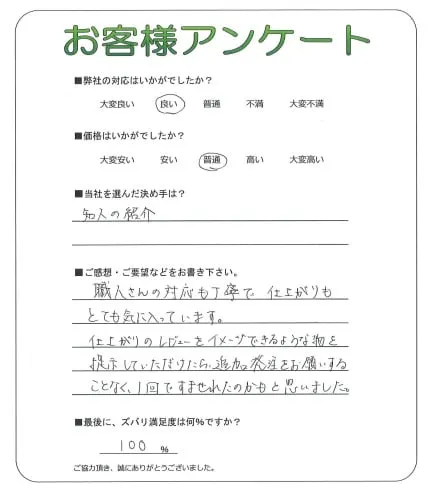 お客様アンケート
■弊社の対応はいかがでしたか?
大変良い 良い 普通 不満 大変不満
■価格はいかがでしたか?
大変安い 安い 普通 高い 大変高い
■当社を選んだ決め手は?
知人の紹介
■ご感想・ご要望などをお書き下さい。
職人さんの対応も丁寧で 仕上がりも
とても気に入っています。
仕上がりのレビューをイメージできるような物を
提示していただけたら、追加発注をお願いする
ことなく、1回ですませれたのかもと思いました。
■最後に、ズバリ満足度は何%ですか?
100 %
ご協力頂き、誠にありがとうございました。